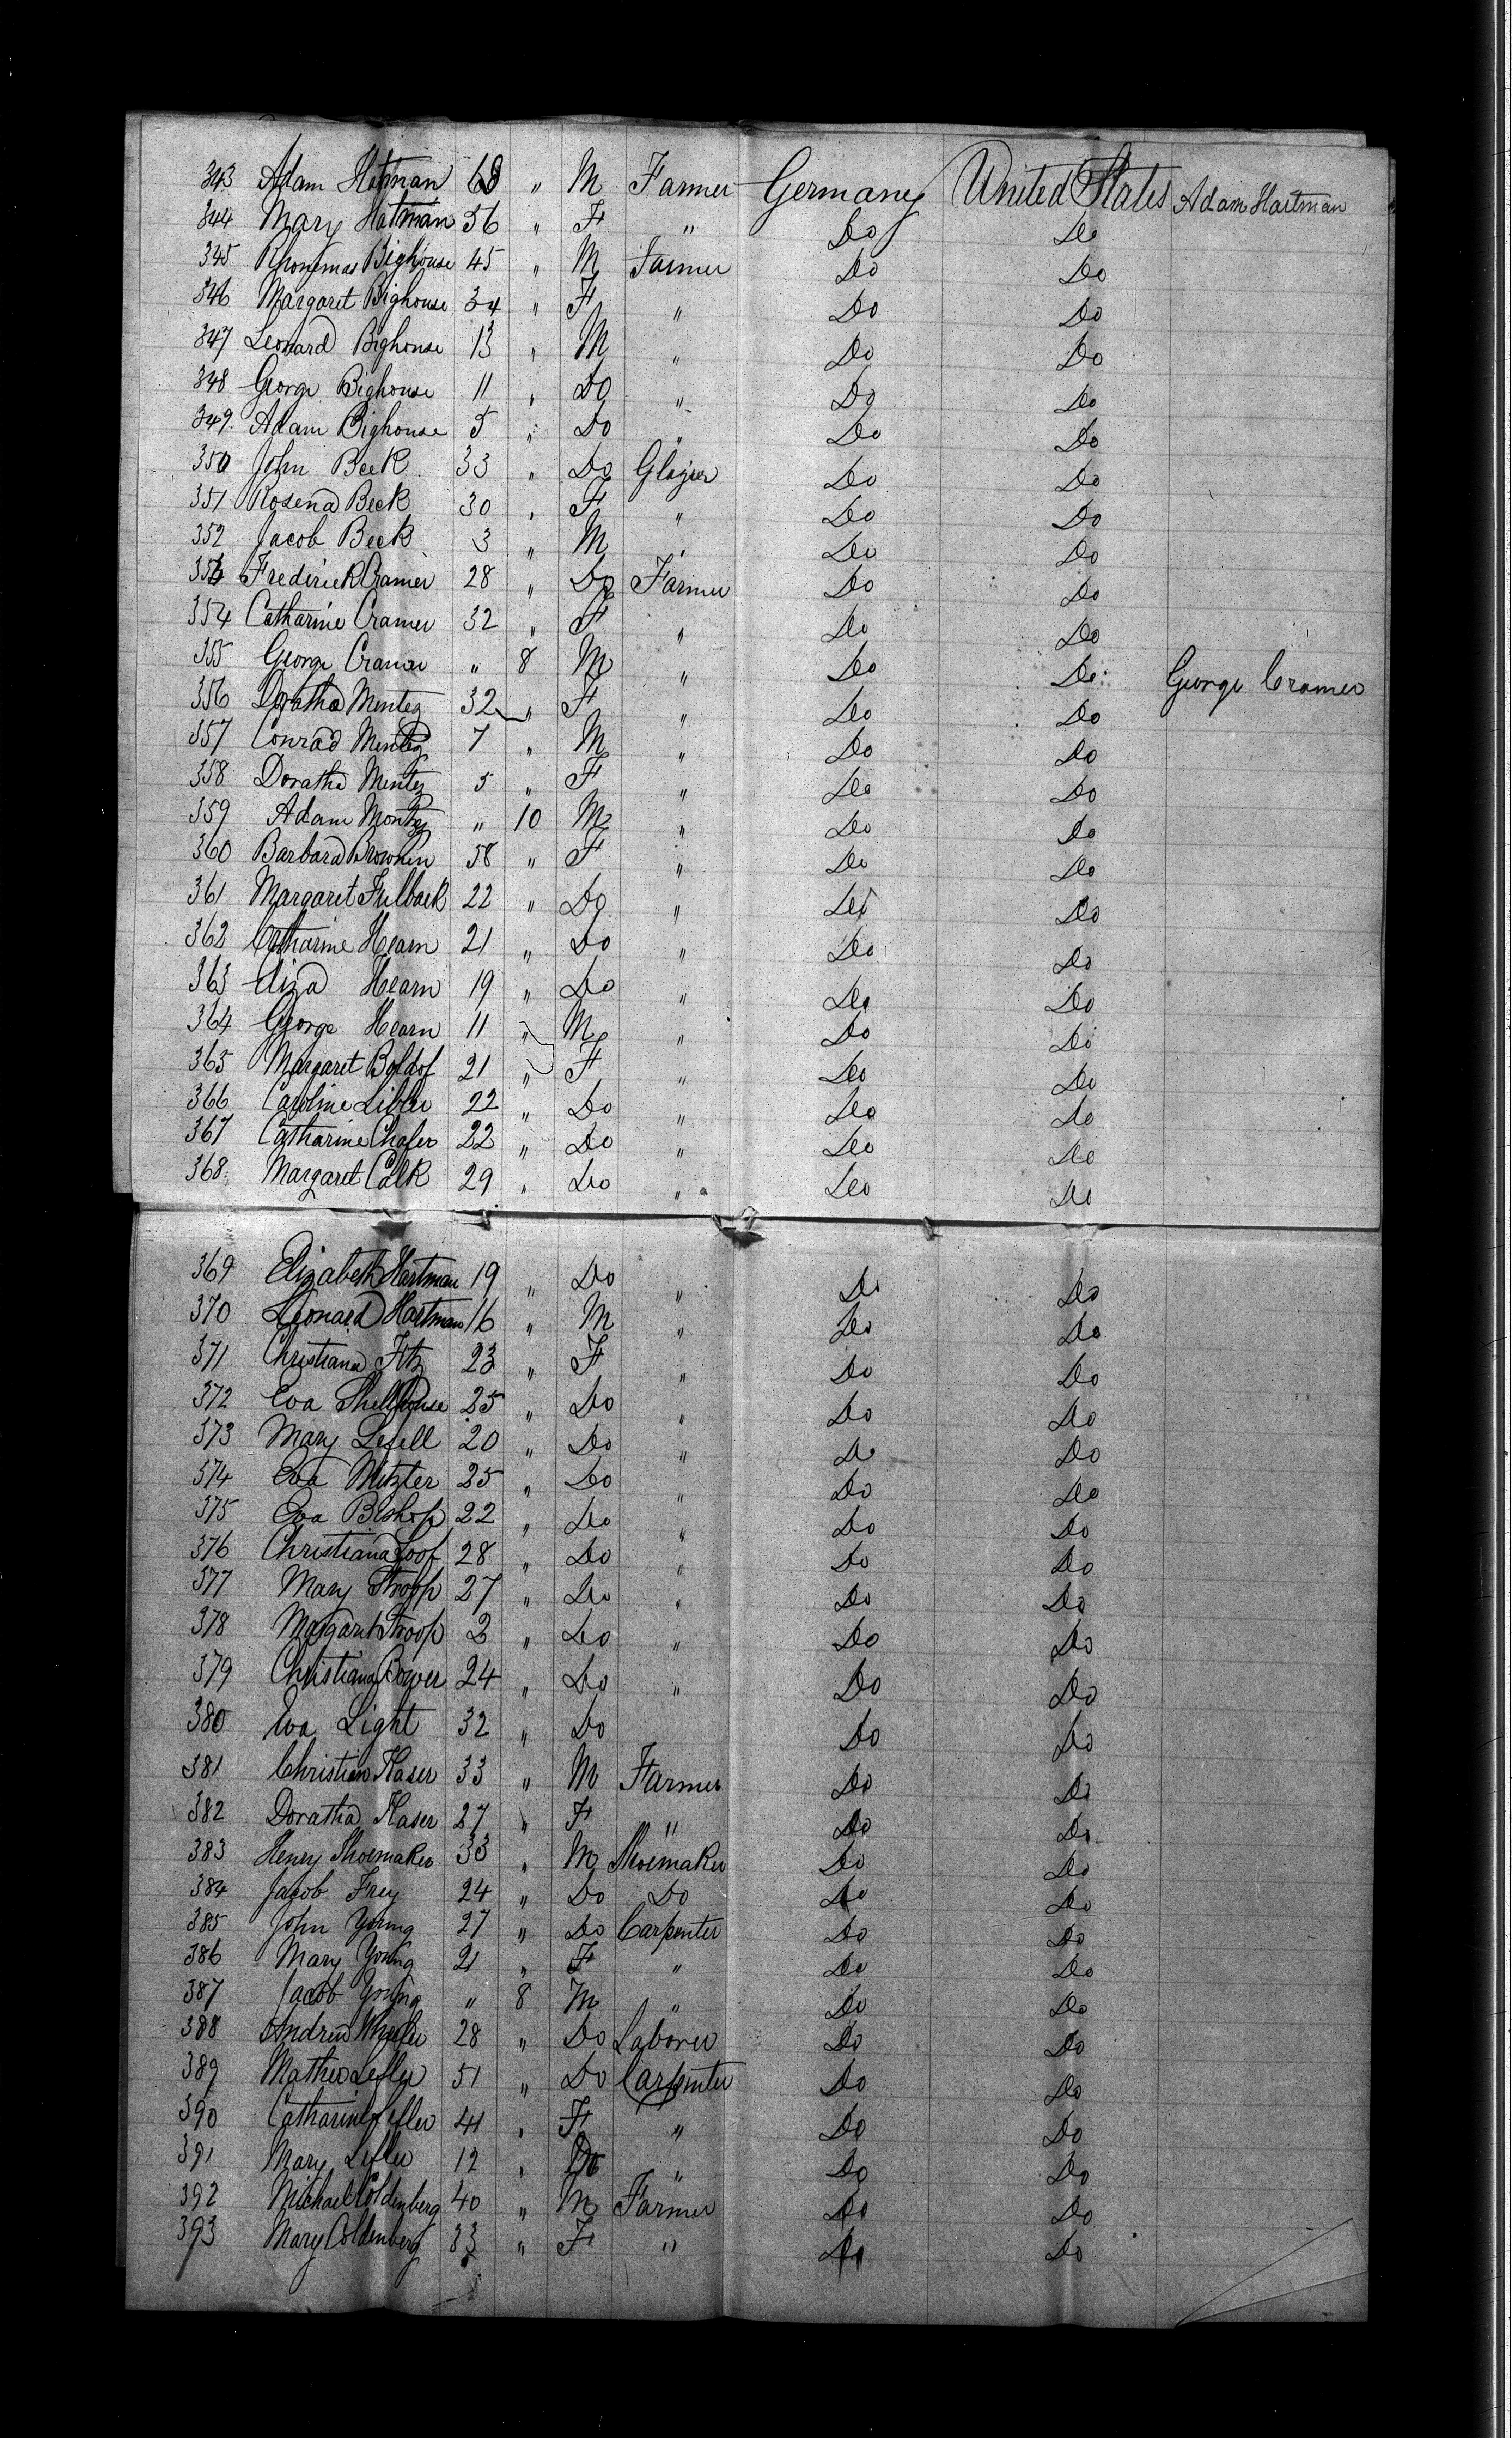 343 Adam Hatman 68 " M Farmer Germany United States Adam Hartman
344 Mary Hatman 56 " F " Do Do
345 Bighouse 45 " M Farmer Do Do
346 Margaret Bighouse 34 " F " Do Do
347 Leonard Bighouse 13 " M " Do Do
348 George Bighouse 11 " Do " Do Do
349. Adam Bighouse 5 " Do " Do Do
350 John Beek 33 " Do Glazier Do Do
351 Rosena Beek 30 " F " Do Do
352 Jacob Beek 3 " M " Do Do
353 Frederick Cramer 28 " Do Farmer Do Do
354 Catharine Cramer 32 " F " Do Do
355 George Cramer " 8 M " Do Do George Cramer
356 Doratha Mentez 32 " F " Do Do
357 Conrad Mentez 7 " M " Do Do
358 Doratha Mentez 5 " F " Do Do
359 Adam Mentez " 10 M " Do Do
360 Barbara 58 " F " Do Do
361 Margaret Fulbaek 22 " Do " Do Do
362 Catharine Hearn 21 " Do " Do Do
363 Eliza Hearn 19 " Do " Do Do
364 George Hearn 11 " M " Do Do
365 Margaret Boldof 21 " F " Do Do
366 Caroline Libler 22 " Do " Do Do
367 Catharine Chafer 22 " Do " Do Do
368. Margaret Calk 29 " Do " Do Do
369 Elizabeth Hartman 19 " Do " Do Do
370 Leonard Hartman 16 " M " Do Do
371 Christiana Fitz 23 " F " Do Do
372 Eva Shellhouse 25 " Do " Do Do
373 Mary Lesell 20 " Do " Do Do
374 Eva Mitzler 25 " Do " Do Do
375 Eva Bishop 22 " Do " Do Do
376 Christiana Loof 28 " Do " Do Do
377 Mary Stroop 27 " Do " Do Do
378 Margaret Stroop 2 " Do " Do Do
379 Christiana Bower 24 " Do " Do Do
380 Eva Light 32 " Do Do Do
381 Christian Kaser 33 " M Farmer Do Do
382 Doratha Kaser 27 " F " Do Do
383 Henry Shoemaker 33 " M Shoemaker Do Do
384 Jacob Frey 24 " Do Do Do Do
385 John Young 27 " Do Carpenter Do Do
386 Mary Young 21 " F " Do Do
387 Jacob Young " 8 M " Do Do
388 Andrew Wheeler 28 " Do Laborer Do Do
389 Mathew Lefler 51 " Do Carpenter Do Do
390 Catharine Lefler 41 " F " Do Do
391 Mary Lefler 12 " Do " Do Do
392 Michael Coldenberg 40 " M Farmer Do Do
393 Mary Coldenberg 33 " F " Do Do